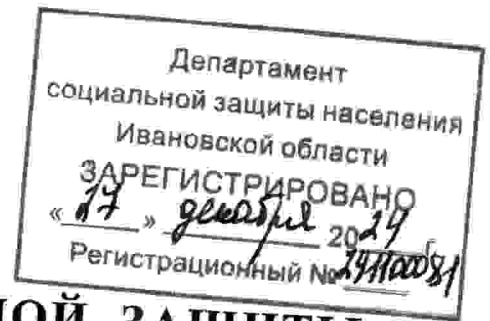 Департамент
социальной защиты населения
Ивановской области
ЗАРЕГИСТРИРОВАНО
« 27 » декабря 2024 г.
Регистрационный №
НОЙ ЗАЩИТЫ